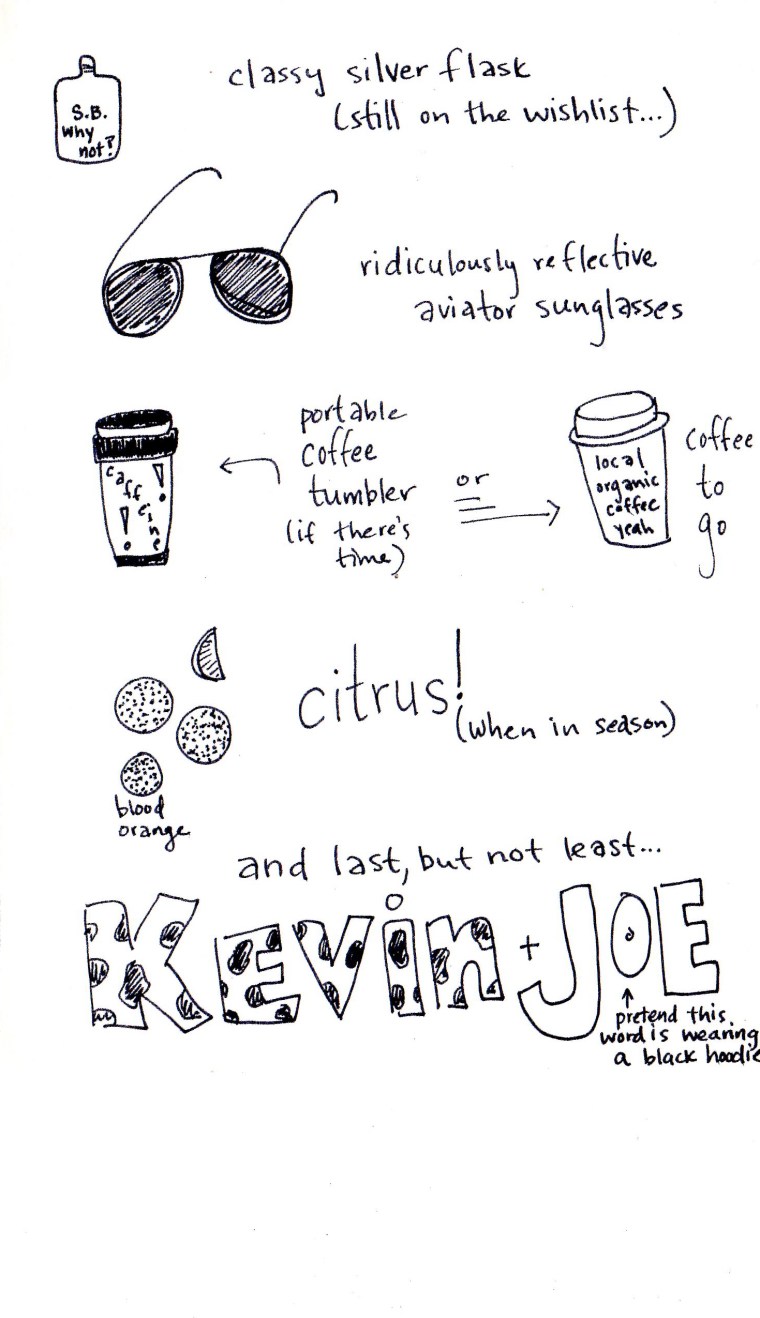 S.B.
Why
not?
classy silver flask
(still on the wishlist...)
ridiculously reflective
aviator sunglasses
caffeine!!
portable
coffee
tumbler
(if there's
time)
or
local
organic
coffee
yeah
coffee
to
go
citrus!
(when in season)
blood
orange
and last, but not least...
Kevin + JOE
pretend this
word is wearing
a black hoodie